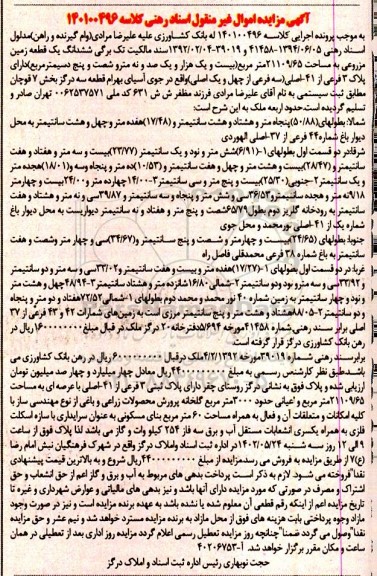 آگهی مزایده اموال غیر منقول اسناد رهنی کلاسه ۱۴۰۱۰۰۴۹۶
به موجب پرونده اجرایی کلاسه ۱۴۰۱۰۰۴۹۶ له بانک کشاورزی علیه علیرضا مرادی(وام گیرنده و راهن)مدلول
اسناد رهنی ۱۳۹۴/۰۶/۰۵-۴۱۴۵۸ و ۳۹۰۱۹-۱۳۹۲/۰۲/۰۴ سند مالکیت تک برگی ششدانگ یک قطعه زمین
مزروعی به مساحت ۲۱۱۰۹/۶۵متر مربع(بیست و یک هزار و صد و نه مترو شصت و پنج دسیمترمربع)دارای
پلاک ۳ فرعی از ۴۱-اصلی(سه فرعی از چهل و یک اصلی)واقع در جوی آسیای بهرام قطعه سه درگز بخش ۷ قوچان
مطابق ثبت سیستمی به نام آقای علیرضا مرادی فرزند مظفر ش ش ۶۳۱ کد ملی ۰۰۶۲۵۳۷۵۷۱ تهران صادر و
تسلیم گردیده است.حدود اربعه ملک به این شرح است:
شمالا:بطولهای(۵۰/۸۸)پنجاه متر و هشتاد و هشت سانتیمتر و (۱۷/۴۸)هفده متر و چهل و هشت سانتیمتر به محل
دیوار باغ شماره۴۴ فرعی از ۳۷-اصلی الهوردی
شرقا:در دو قسمت اول بطولهای۱-(۶/۹۱)شش متر و نود و یک سانتیمتر (۲۳/۷۷)بیست و سه متر و هفتاد و هفت
سانتیمتر و (۲۸/۴۷)بیست و هشت متر و چهل و هفت سانتیمتر و (۱۰/۵۳)ده متر و پنجاه وسه و (۱۸/۰۱)هجده متر
و یک سانتیمتر۲-جنوبی(۲۵/۳۰)بیست و پنج متر و سی سانتیمتر۳-۱۴/۰۰چهارده متر و ۲۴/۰۰بیست و چهارمتر
۹/۱۸نه متر و هجده سانتیمترو۳۶/۵۳سی و شش متر و پنجاه و سه سانتیمتر و ۳۹/۸۷سی و نه متر و هشتاد و هفت
سانتیمتر به رودخانه گلریز دوم بطول ۶۵/۷۹شصت و پنج متر و هفتاد و نه سانتیمتر دیواریست به محل دیوار باغ
شماره یک از ۴۱-اصلی نورمحمد و محل جوی
جنوبا:بطولهای(۲۴/۶۵)بیست و چهارمتر و شصت و پنج سانتیمتر و(۳۴/۶۷)سی و چهار متر وشصت و هفت
سانتیمتر به باغ شماره ۲۸ فرعی محمدقلی فاصل راه
غربا:در دو قسمت اول بطولهای۱-(۱۷/۲۷)هفده متر و بیست و هفت سانتیمتر و۳۳/۰۲سی و سه متر و دو سانتیمتر
و ۳۳/۹۲سی و سه متر و نود ودو سانتیمتر۲-شمالی۱۶/۸۰شانزده متر و هشتاد سانتیمتر۳-۴۸/۹۴چهل و هشت متر
و نود و چهار سانتیمتر به زمین شماره ۴۰ نور محمد و محمد دوم بطولهای۱-شمالی۷۲/۵۲هفتاد و دو متر و پنجاه
و دو سانتیمتر۲-۸۸/۰۵هشتاد و هشت متر و پنج سانتیمتر مرزی است به زمین‌های شمارات ۴۲ و ۴۳ فرعی از ۳۷
اصلی برابر سند رهنی.شماره ۴۱۴۵۸ مورخه ۵/۶/۹۴دفترخانه ۲۰ درگز ملک در قبال مبلغ ۱۶۰۰۰۰۰۰۰۰ریال در
رهن بانک کشاورزی درگز قرار گرفته است
برابرسند رهنی شماره ۳۹۰۱۹ مورخه ۴/۲/۱۳۹۲ ملک درقبال ۶۰۰۰۰۰۰۰۰ ریال در رهن بانک کشاورزی می
باشد.طبق نظر کارشناس رسمی به مبلغ ۴۴۰۰۰۰۰۰۰۰۰ریال معادل چهار میلیارد و چهار صد میلیون تومان
ارزیابی شده و پلاک فوق به نشانی درگز روستای چقر دارای پلاک ثبتی ۳ فرعی از ۴۱-اصلی با عرصه ای به مساحت
۲۱۱۰۹/۶۵ متر مربع و اعیانی حدود ۳۰۰۰متر مربع گلخانه پرورش محصولات زراعی و باغی از نوع مهندسی ساز با
کلیه امکانات و متعلقات آن و فعال به همراه مساحت ۶۰ متر مربع بنای مسکونی به عنوان سرایداری با سازه اسکلت
فلزی به همراه یکسری انشعابات مستقل آب و برق سه فاز ۲۵۴ کیلو وات و گاز می باشد لذا پلاک فوق از ساعت
۹ الی ۱۲ روز سه شنبه ۱۴۰۲/۰۵/۲۴ در اداره ثبت اسناد واملاک درگز واقع در شهرک فرهنگیان نبش امام رضا
(ع)۷ از طریق مزایده به فروش می رسد.مزایده از مبلغ ۴۴۰۰۰۰۰۰۰۰۰ریال شروع و به بالاترین قیمت پیشنهادی
نقدا"فروخته می شود. لازم به ذکر است پرداخت بدهی های مربوط به آب و برق و گاز اعم از حق انشعاب و حق
اشتراک و مصرف در صورتی که مورد مزایده دارای آنها باشد و نیز بدهی های مالیاتی و عوارض شهرداری و غیره تا
تاریخ مزایده اعم از اینکه رقم قطعی آن معلوم شده یا نشده باشد به عهده برنده مزایده است و نیز در صورت وجود
مازاد وجوه پرداختی بابت هزینه های فوق از محل مازاد به برنده مزایده مسترد خواهد شد و نیم عشر و حق مزایده
نقدا"وصول می گردد ضمنا"چنانچه روز مزایده تعطیل رسمی اعلام گردد مزایده روز اداری بعد از تعطیلی در همان
ساعت و مکان مقرر برگزار خواهد شد. آ-۴۰۲۰۶۷۵۳
حجت نوبهاری رئیس اداره ثبت اسناد و املاک درگز